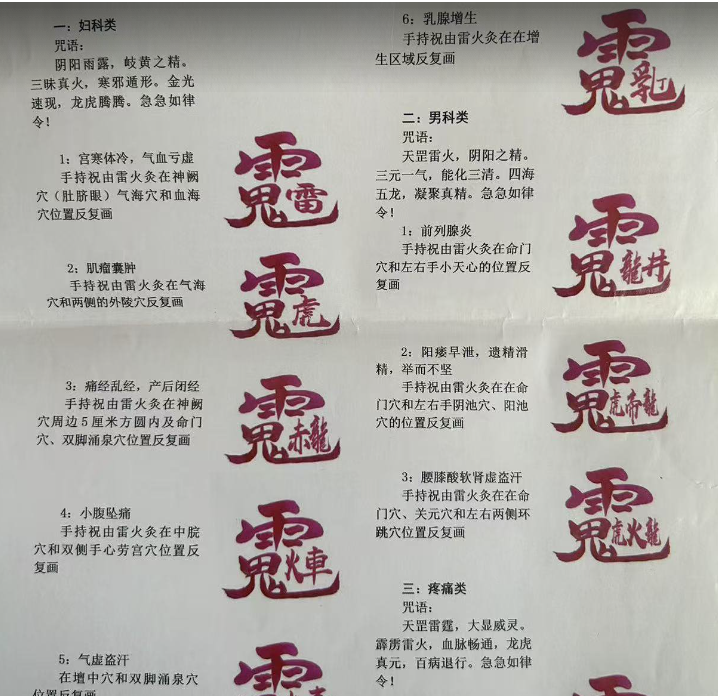 一：妇科类
咒语：
阴阳雨露，岐黄之精。
三昧真火，寒邪遁形。金光
速现，龙虎腾腾。急急如律
令！
1：宫寒体冷，气血亏虚
手持祝由雷火灸在神阙
穴（肚脐眼）气海穴和血海
穴位置反复画
雷
2：肌瘤囊肿
手持祝由雷火灸在气海
穴和两侧的外陵穴反复画
虎
3：痛经乱经，产后闭经
手持祝由雷火灸在神阙
穴周边5厘米方圆内及命门
穴、双脚涌泉穴位置反复画
赤龍
4：小腹坠痛
手持祝由雷火灸在中脘
穴和双侧手心劳宫穴位置反
复画
火車
5：气虚盗汗
在壇中穴和双脚涌泉穴
位置反复画
6：乳腺增生
手持祝由雷火灸在在增
生区域反复画
乳丁
二：男科类
咒语：
天罡雷火，阴阳之精。
三元一气，能化三清。四海
五龙，凝聚真精。急急如律
令！
1：前列腺炎
手持祝由雷火灸在命门
穴和左右手小天心的位置反
复画
龍井
2：阳痿早泄，遗精滑
精，举而不坚
手持祝由雷火灸在在命
门穴和左右手阴池穴、阳池
穴的位置反复画
虎帝龍
3：腰膝酸软肾虚盗汗
手持祝由雷火灸在在命
门穴、关元穴和左右两侧环
跳穴位置反复画
虎火龍
三：疼痛类
咒语：
天罡雷霆，大显威灵。
霹雳雷火，血脉畅通，龙虎
真元，百病退行。急急如律
令！